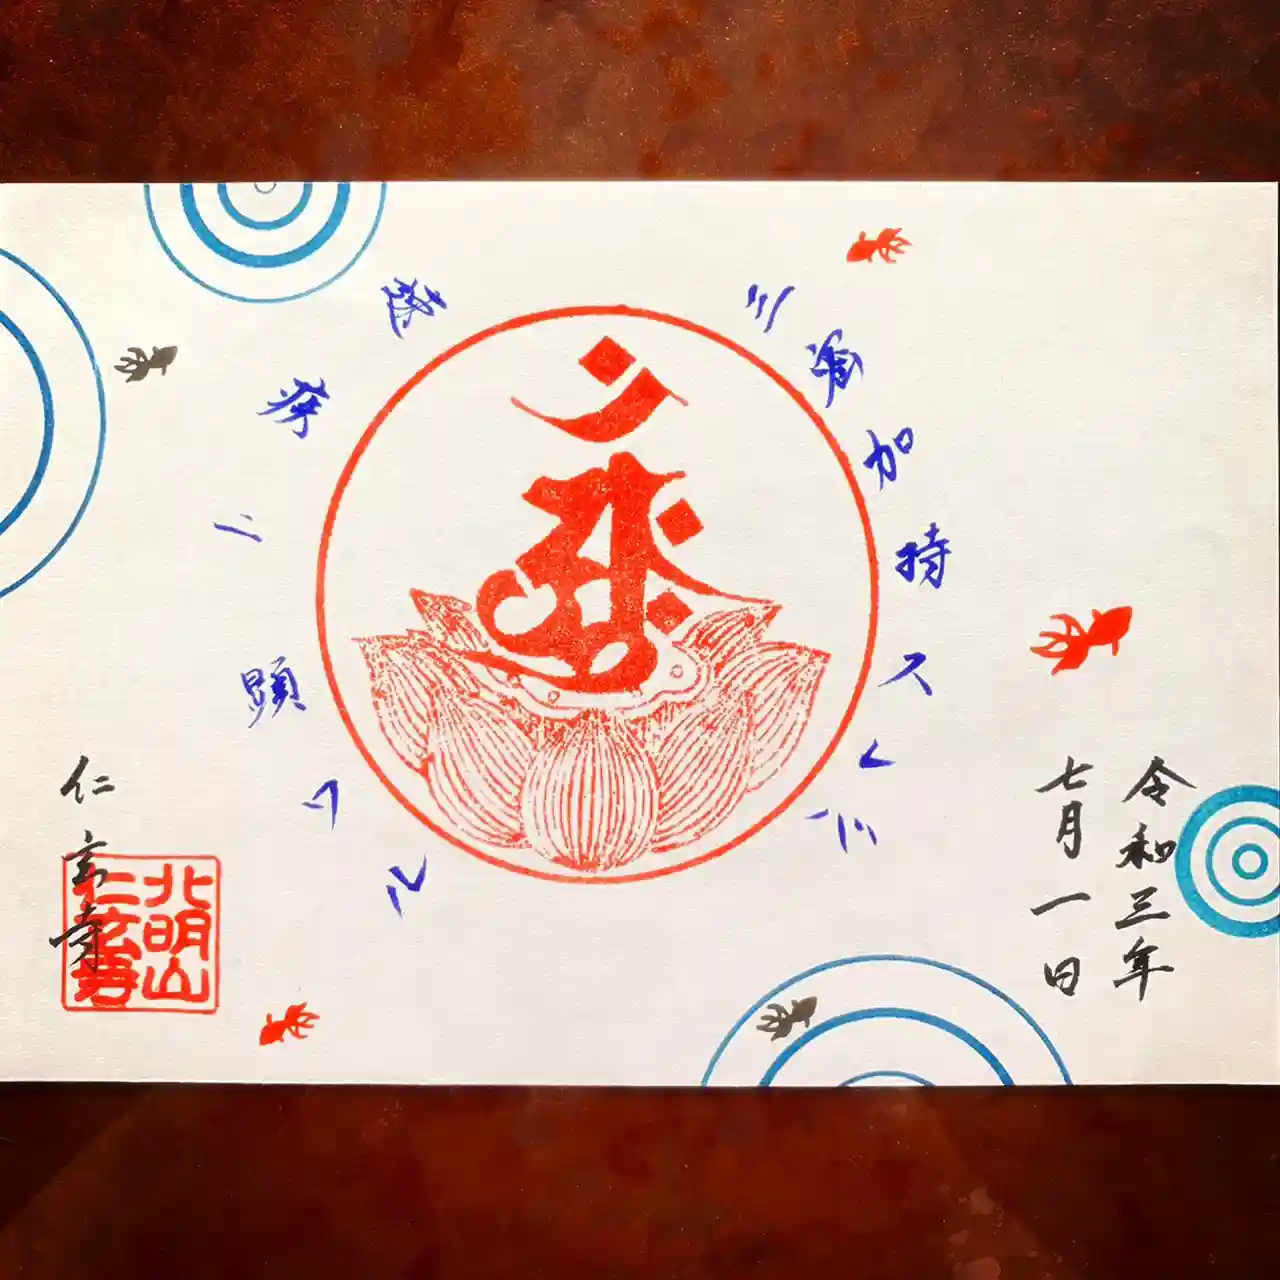 令和三年
七月一日
三密加持スレバ
速疾ニ顕ワル
仁玄寺
北明山